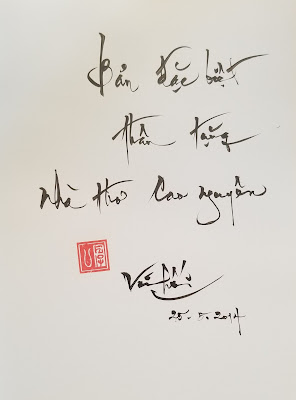 Bản đặc biệt
thân tặng
Nhà thơ Cao Nguyên
25.5.2014